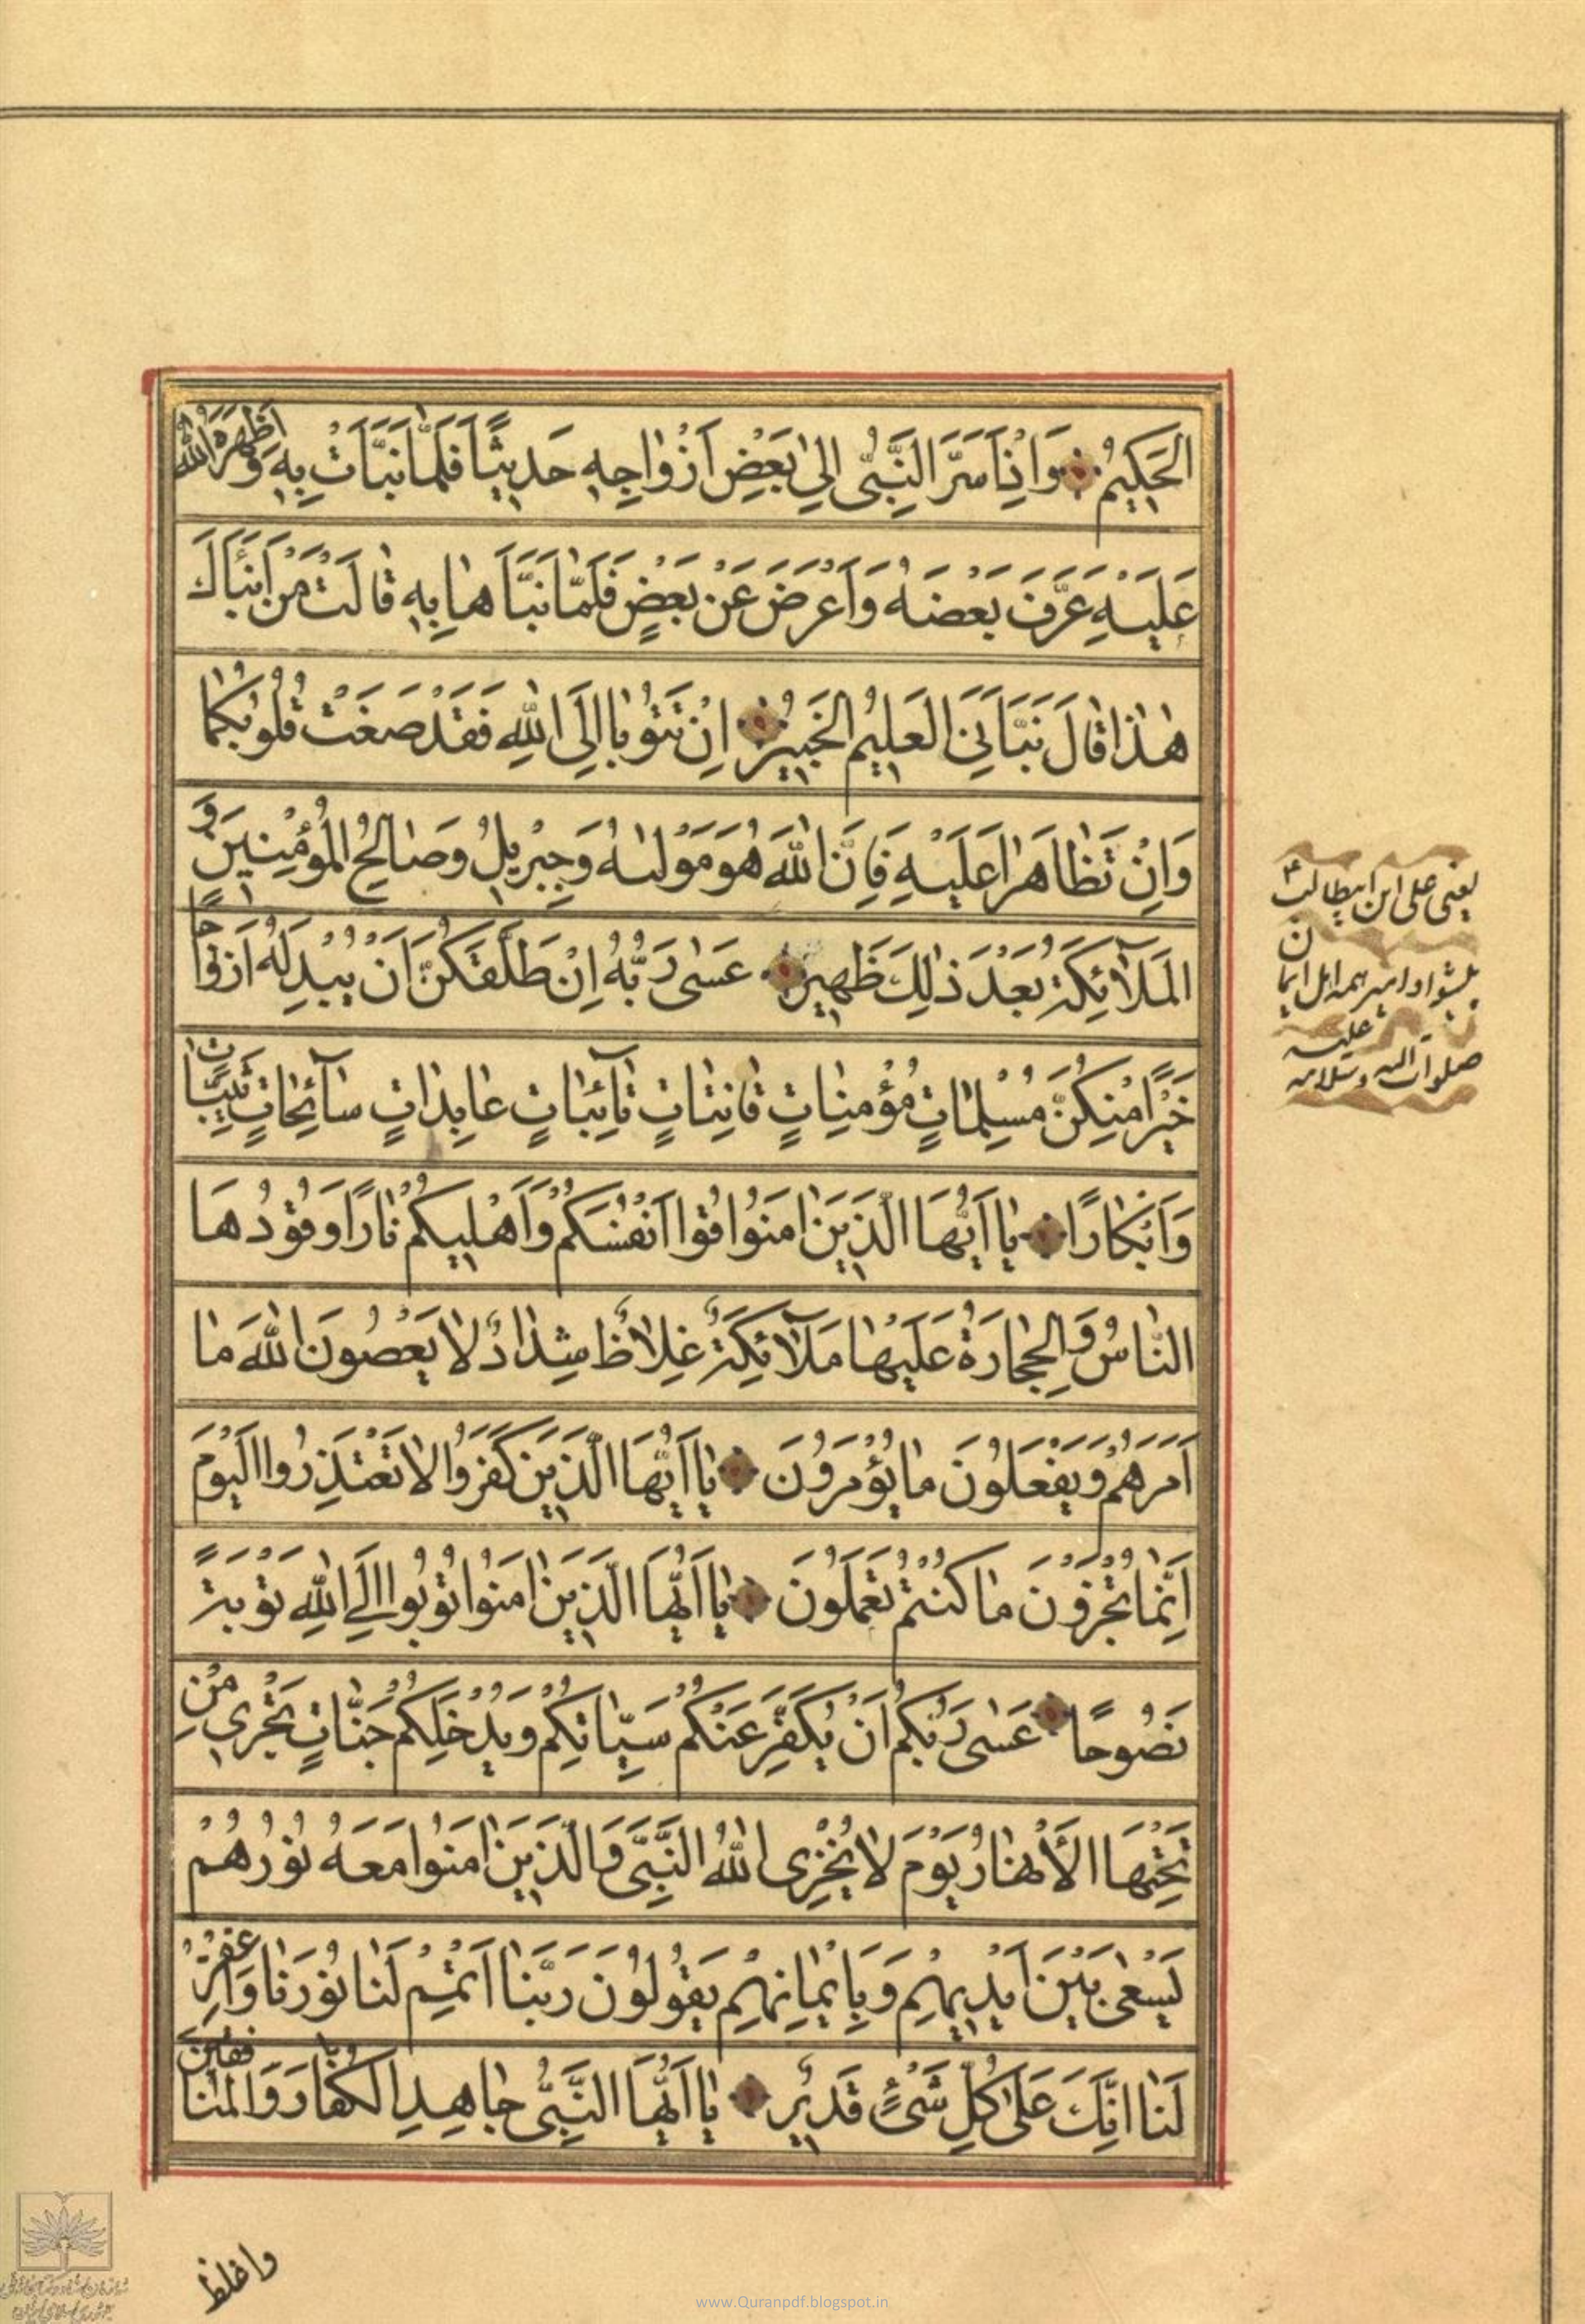 الحَكِيمُ وَاِذْ اَسَرَّ النَّبِىُّ اِلىٰ بَعْضِ اَزْوٰاجِهٖ حَدِيثًا فَلَمَّا نَبَّاَتْ بِهٖ وَ اَظْهَرَهُ اللّٰهُ
عَلَيْهِ عَرَّفَ بَعْضَهُ وَاَعْرَضَ عَنْ بَعْضٍ فَلَمّٰا نَبَّاَهٰا بِهٖ قٰالَتْ مَنْ اَنْبَاَكَ
هٰذٰا قٰالَ نَبَّاَنِىَ العَلِيمُ الخَبِيرُ اِنْ تَتُوبٰا اِلَى اللّٰهِ فَقَدْ صَغَتْ قُلُوبُكُمٰا
وَاِنْ تَظٰاهَرٰا عَلَيْهِ فَاِنَّ اللّٰهَ هُوَ مَوْلٰىهُ وَجِبْرِيلُ وَصٰالِحُ المُؤْمِنِينَ وَ
المَلٰٓائِكَةُ بَعْدَ ذٰلِكَ ظَهِيرٌ عَسٰى رَبُّهُ اِنْ طَلَّقَكُنَّ اَنْ يُبْدِلَهُ اَزْوٰاجًا
خَيْرًا مِنْكُنَّ مُسْلِمٰاتٍ مُؤْمِنٰاتٍ قٰانِتٰاتٍ تٰائِبٰاتٍ عٰابِدٰاتٍ سٰآئِحٰاتٍ ثَيِّبٰاتٍ
وَاَبْكٰارًا يٰا اَيُّهَا الَّذِينَ اٰمَنُوا قُوا اَنْفُسَكُمْ وَاَهْلِيكُمْ نٰارًا وَقُودُهَا
النّٰاسُ وَالحِجٰارَةُ عَلَيْهٰا مَلٰٓائِكَةٌ غِلٰاظٌ شِدٰادٌ لٰا يَعْصُونَ اللّٰهَ مٰا
اَمَرَهُمْ وَيَفْعَلُونَ مٰا يُؤْمَرُونَ يٰا اَيُّهَا الَّذِينَ كَفَرُوا لٰا تَعْتَذِرُوا اليَوْمَ
اِنَّمٰا تُجْزَوْنَ مٰا كُنْتُمْ تَعْمَلُونَ يٰا اَيُّهَا الَّذِينَ اٰمَنُوا تُوبُوا اِلَى اللّٰهِ تَوْبَةً
نَصُوحًا عَسٰى رَبُّكُمْ اَنْ يُكَفِّرَ عَنْكُمْ سَيِّاٰتِكُمْ وَيُدْخِلَكُمْ جَنّٰاتٍ تَجْرِى مِنْ
تَحْتِهَا الأَنْهٰارُ يَوْمَ لٰا يُخْزِى اللّٰهُ النَّبِىَّ وَالَّذِينَ اٰمَنُوا مَعَهُ نُورُهُمْ
يَسْعٰى بَيْنَ اَيْدِيهِمْ وَبِاَيْمٰانِهِمْ يَقُولُونَ رَبَّنٰا اَتْمِمْ لَنٰا نُورَنٰا وَاغْفِرْ
لَنٰا اِنَّكَ عَلىٰ كُلِّ شَىْءٍ قَدِيرٌ يٰا اَيُّهَا النَّبِىُّ جٰاهِدِ الكُفّٰارَ وَالمُنٰافِقِينَ
يعنى على ابن ابيطالب
پيشوا و امير همه اهل ايمان
صلوات الله عليه وسلامه
واغلظ
www.Quranpdf.blogspot.in